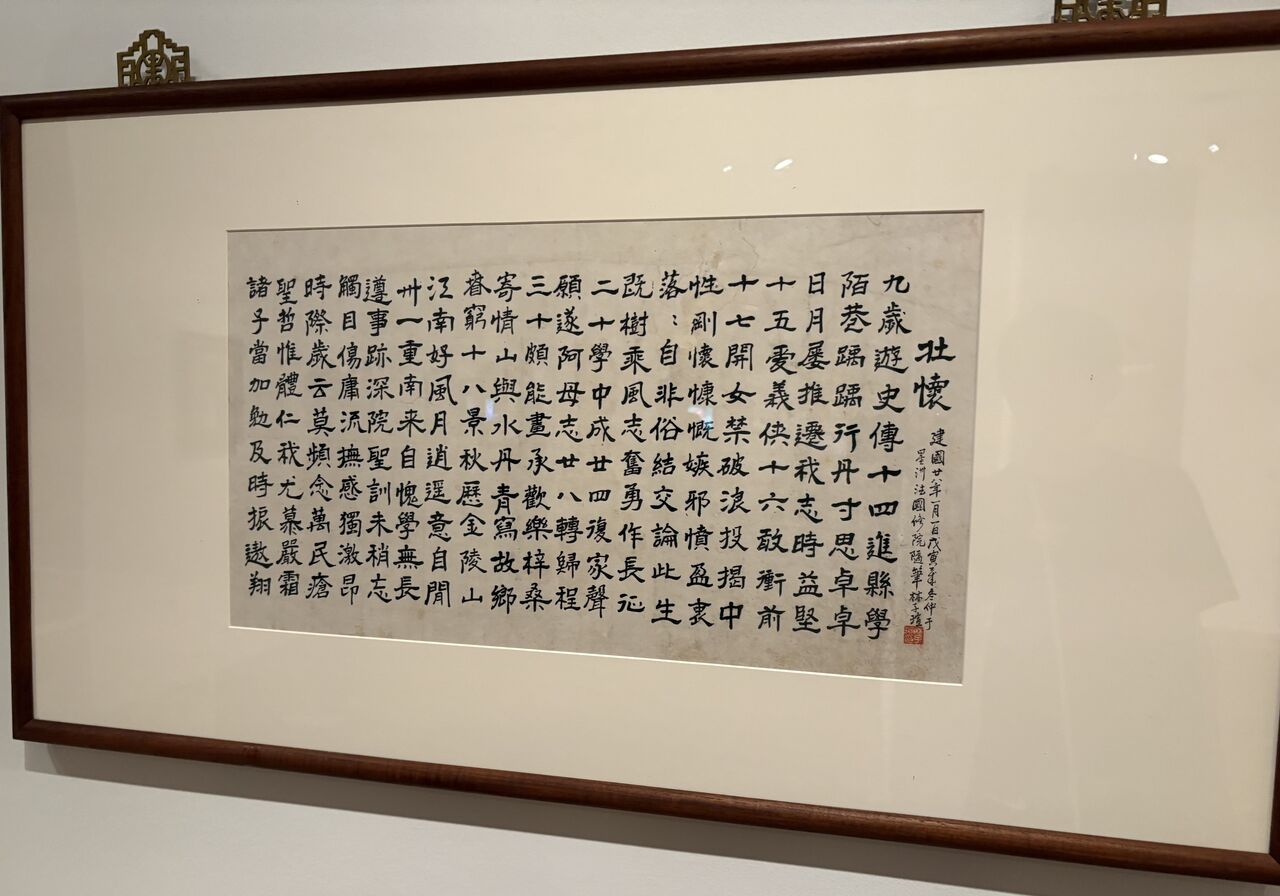 壯懷
建國廿八年一月一日戊寅年冬仲于
星洲法國修院隨筆林子瑄
九歲遊史傳十四進縣學
陌巷踽踽行丹寸思卓卓
日月屢推遷我志時益堅
十五愛義俠十六敢衝前
十七開女禁破浪投揭中
性剛懷慷慨嫉邪憤盈衷
落〻自非俗結交論此生
既樹乘風志奮勇作長征
二十學中成廿四復家聲
願遂阿母志廿八轉歸程
三十頗能畫承歡樂梓桑
寄情山與水丹青寫故鄉
春窮十八景秋歷金陵山
江南好風月逍遥意自閒
卅一重南来自愧學無長
遵事跡深院聖訓未稍忘
觸目傷庸流撫感獨激昂
時際歲云莫頻念萬民瘡
聖哲惟體仁我尤慕嚴霜
諸子當加勉及時振遨翔